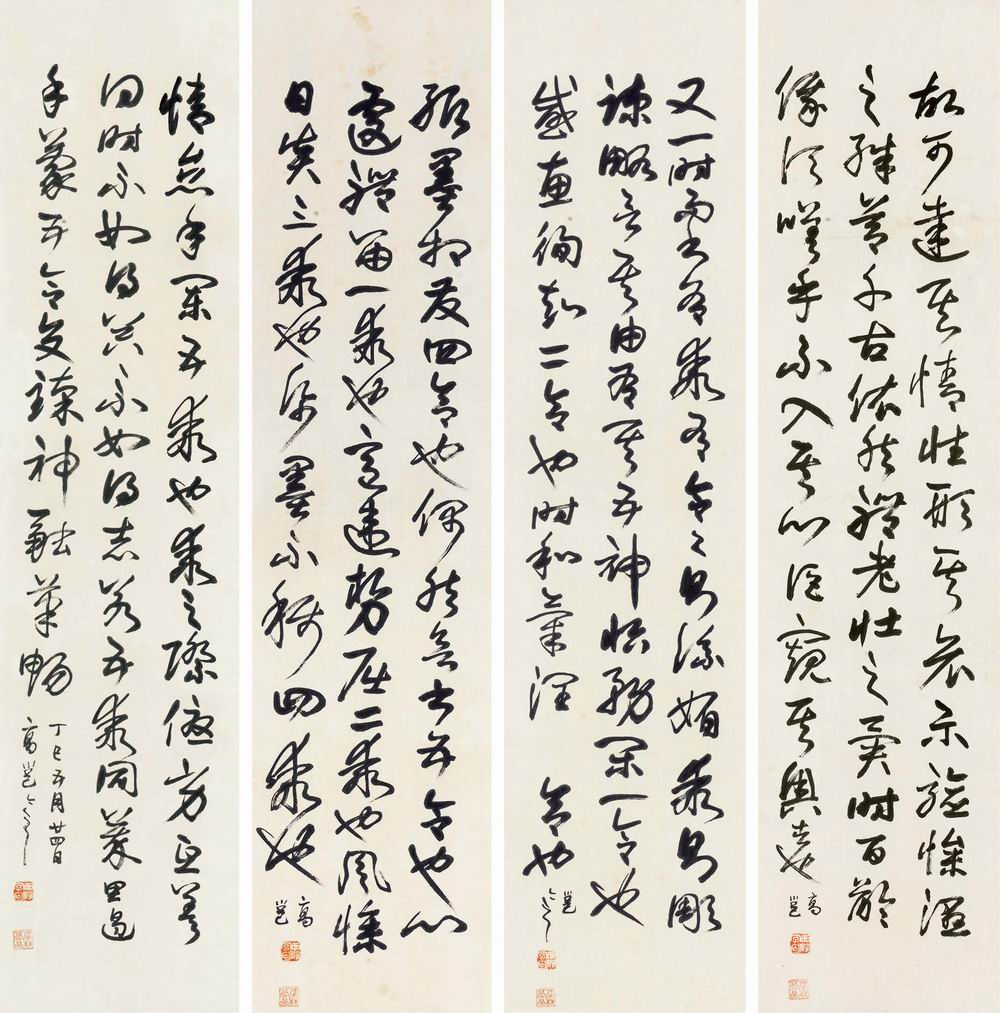 故可達其情性形其哀樂驗燥濕
之殊節千古依然體老壯之異時百齡
俄頃嗟乎不入其門詎窺其奧者也
高邕
又一時而書有乖有合合則流媚乖則彫
疎略言其由各其五神怡務閑一合也
感惠徇知二合也時和氣潤 合也
邕之
紙墨相發四合也偶然欲書五合也心
遽體留一乖也意違勢屈二乖也風燥
日炎三乖也紙墨不稱四乖也
高邕
情怠手闌五乖也乖之際優劣互差
得時不如得器不如得志若五乖同萃思遏
手蒙五合交臻神融筆暢
丁巳五月廿四日
高邕之